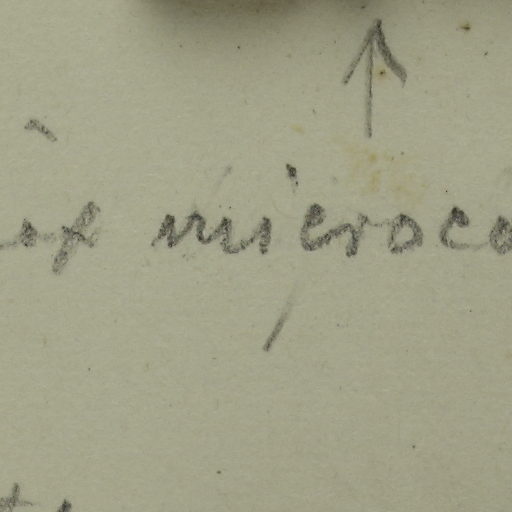 of microco